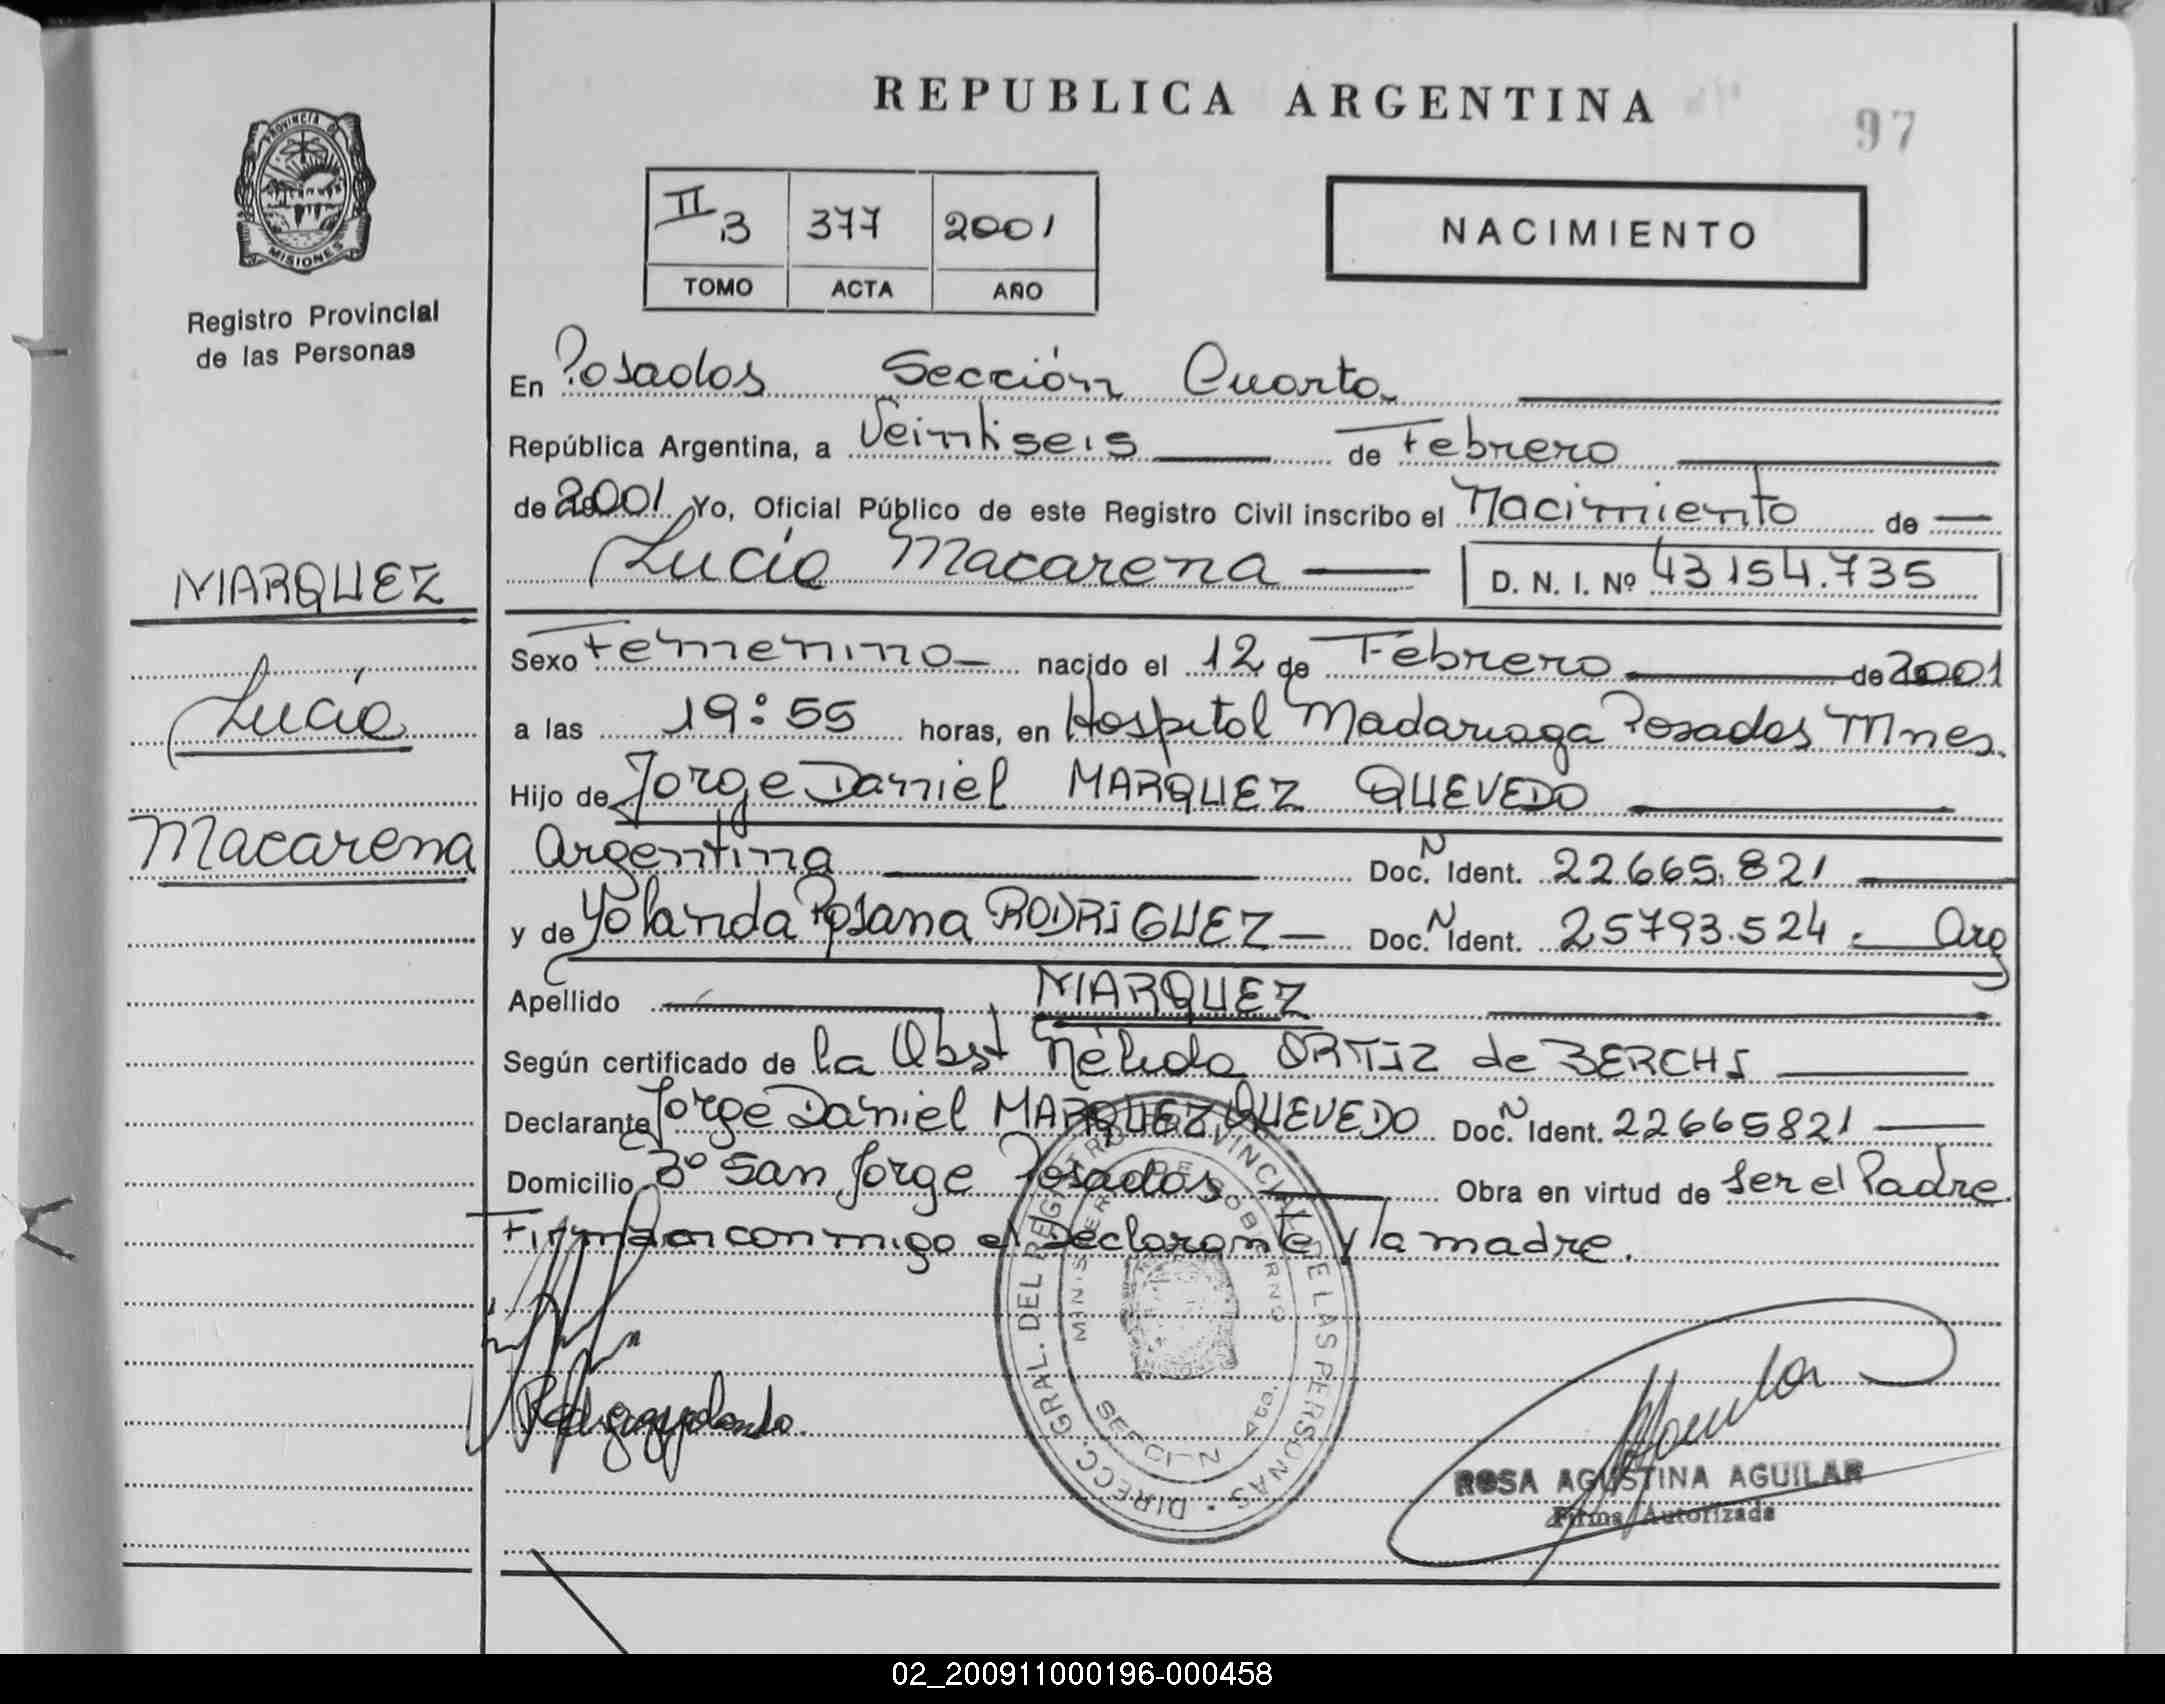 REPUBLICA ARGENTINA
97
PROVINCIA DE
MISIONES
Registro Provincial
de las Personas
II B 377 2001
TOMO ACTA AÑO
NACIMIENTO
En Posadas Sección Cuarta
República Argentina, a Veintiseis de Febrero
de 2001 Yo, Oficial Público de este Registro Civil inscribo el Nacimiento de
Lucía Macarena D. N. I. Nº 43154.735
MARQUEZ
Lucía
Macarena
Sexo Femenino nacido el 12 de Febrero de 2001
a las 19:55 horas, en Hospital Madariaga Posadas Mnes.
Hijo de Jorge Daniel MARQUEZ QUEVEDO
Argentina Doc. N Ident. 22665.821
y de Yolanda Rosana RODRIGUEZ Doc. N Ident. 25793.524. Arg
Apellido MARQUEZ
Según certificado de la Obst Nélida ORTIZ de BERCHI
Declarante Jorge Daniel MARQUEZ QUEVEDO Doc. N Ident. 22665821
Domicilio Bº San Jorge Posadas Obra en virtud de Ser el Padre
Firman conmigo el Declarante y la madre.
DIRECC. GRAL. DEL REGISTRO PROVINCIAL DE LAS PERSONAS
MINISTERIO DE GOBIERNO
SECCION 4ta.
ROSA AGUSTINA AGUILAR
Firma Autorizada
02_200911000196-000458